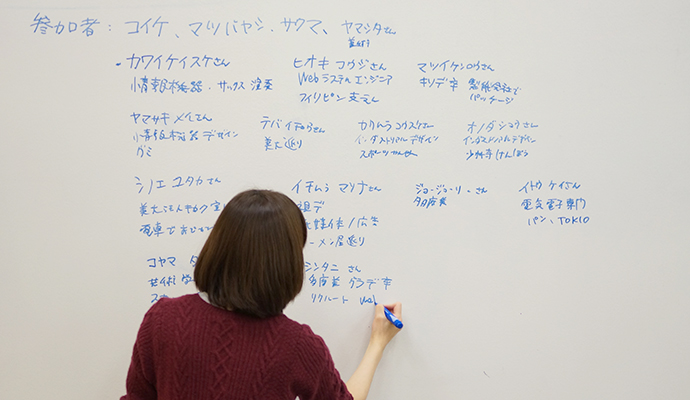 参加者: コイケ、マツバヤシ、サクマ、ヤマシタさん
- カワイケイスケさん
情報機器・サックス 演奏
ヒオキ コウジさん
Webシステムエンジニア
フィリピン支えん
マツイケンロウさん
キソデ卒 製紙会社で
パッケージ
ヤマサキ メイさん
情報機器デザイン
デバイ さん
美大巡り
カわムラ コウスケさん
インダストリアルデザイン
オノダ ショウさん
インダストリアルデザイン
少林寺けんぽう
シノエ ユタカさん
電車で
イチムラ マリナさん
媒体/広告
ーメン屋巡り
ジョージョーリーさん
イトウ ケイさん
電気電子専門
パン、TOKIO
コヤマ
シンタニ さん
多摩美 グラデ卒
リクルート Web